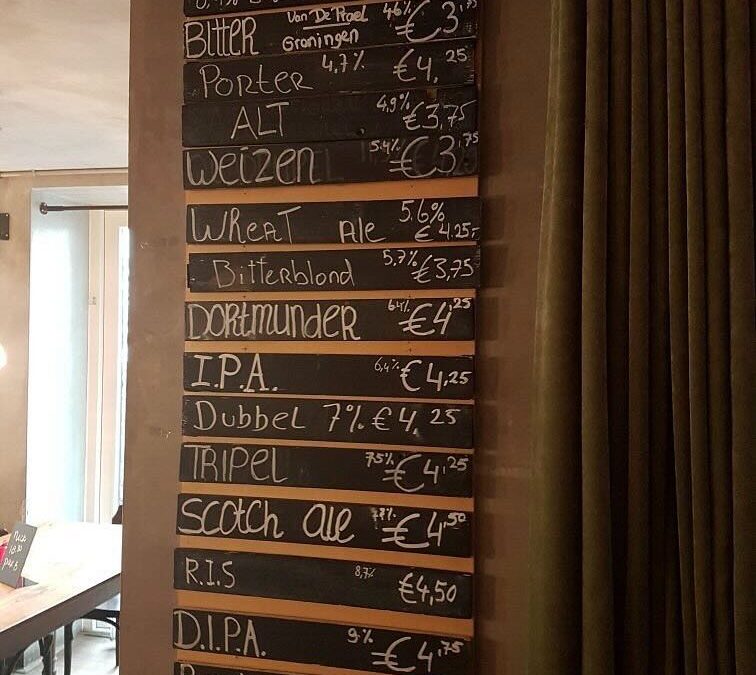 BItteR Van De Prael Groningen 4,6% €3,75
PORteR 4,7% €4,25
ALT 4,9% €3,75
Weizen 5.4% €3,75
WHeAT Ale 5.6% €4,25,-
Bitterblond 5,7% €3,75
DORtmunder 6,4% €4,25
I.P.A. 6,4% €4,25
Dubbel 7% €4,25
TRIPel 7,5% €4,25
Scotch ale €4,50
R.I.S 8,7% €4,50
D.I.P.A. 9% €4,75